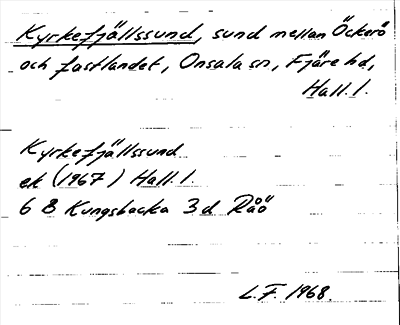 Kyrkefjällssund, sund mellan Öckerö
och fastlandet, Onsala sn, Fjäre hd,
Hall. l.
Kyrkefjällssund
ek (1967) Hall. l.
6 B Kungsbacka 3d Råö
L.F. 1968.